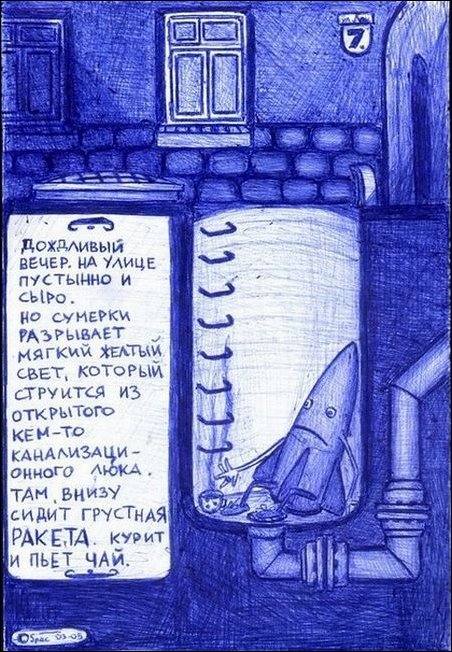 7.
ДОЖДЛИВЫЙ
ВЕЧЕР. НА УЛИЦЕ
ПУСТЫННО И
СЫРО.
НО СУМЕРКИ
РАЗРЫВАЕТ
МЯГКИЙ ЖЕЛТЫЙ
СВЕТ, КОТОРЫЙ
СТРУИТСЯ ИЗ
ОТКРЫТОГО
КЕМ-ТО
КАНАЛИЗАЦИ-
ОННОГО ЛЮКА.
ТАМ, ВНИЗУ
СИДИТ ГРУСТНАЯ
РАКЕТА. КУРИТ
И ПЬЕТ ЧАЙ.
©Spac 03-05